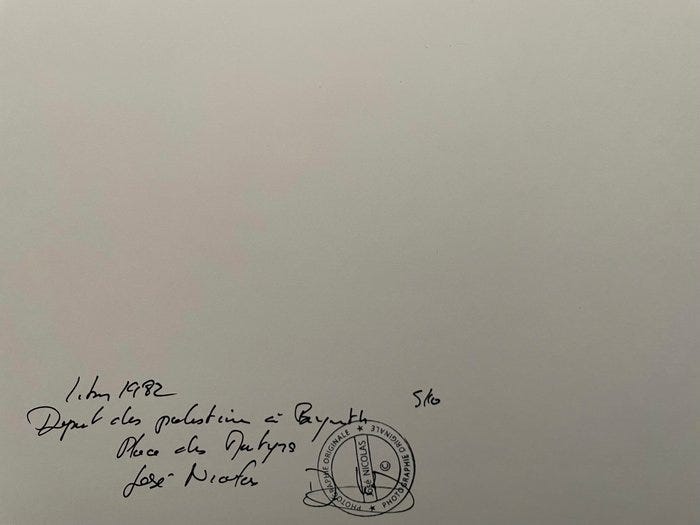 Liban 1982
5/10
Depart des palestiens à Beyrouth
Place des Martyrs
José Nicolas
PHOTOGRAPHIE ORIGINALE ★ PHOTOGRAPHIE ORIGINALE ★
José NICOLAS ©